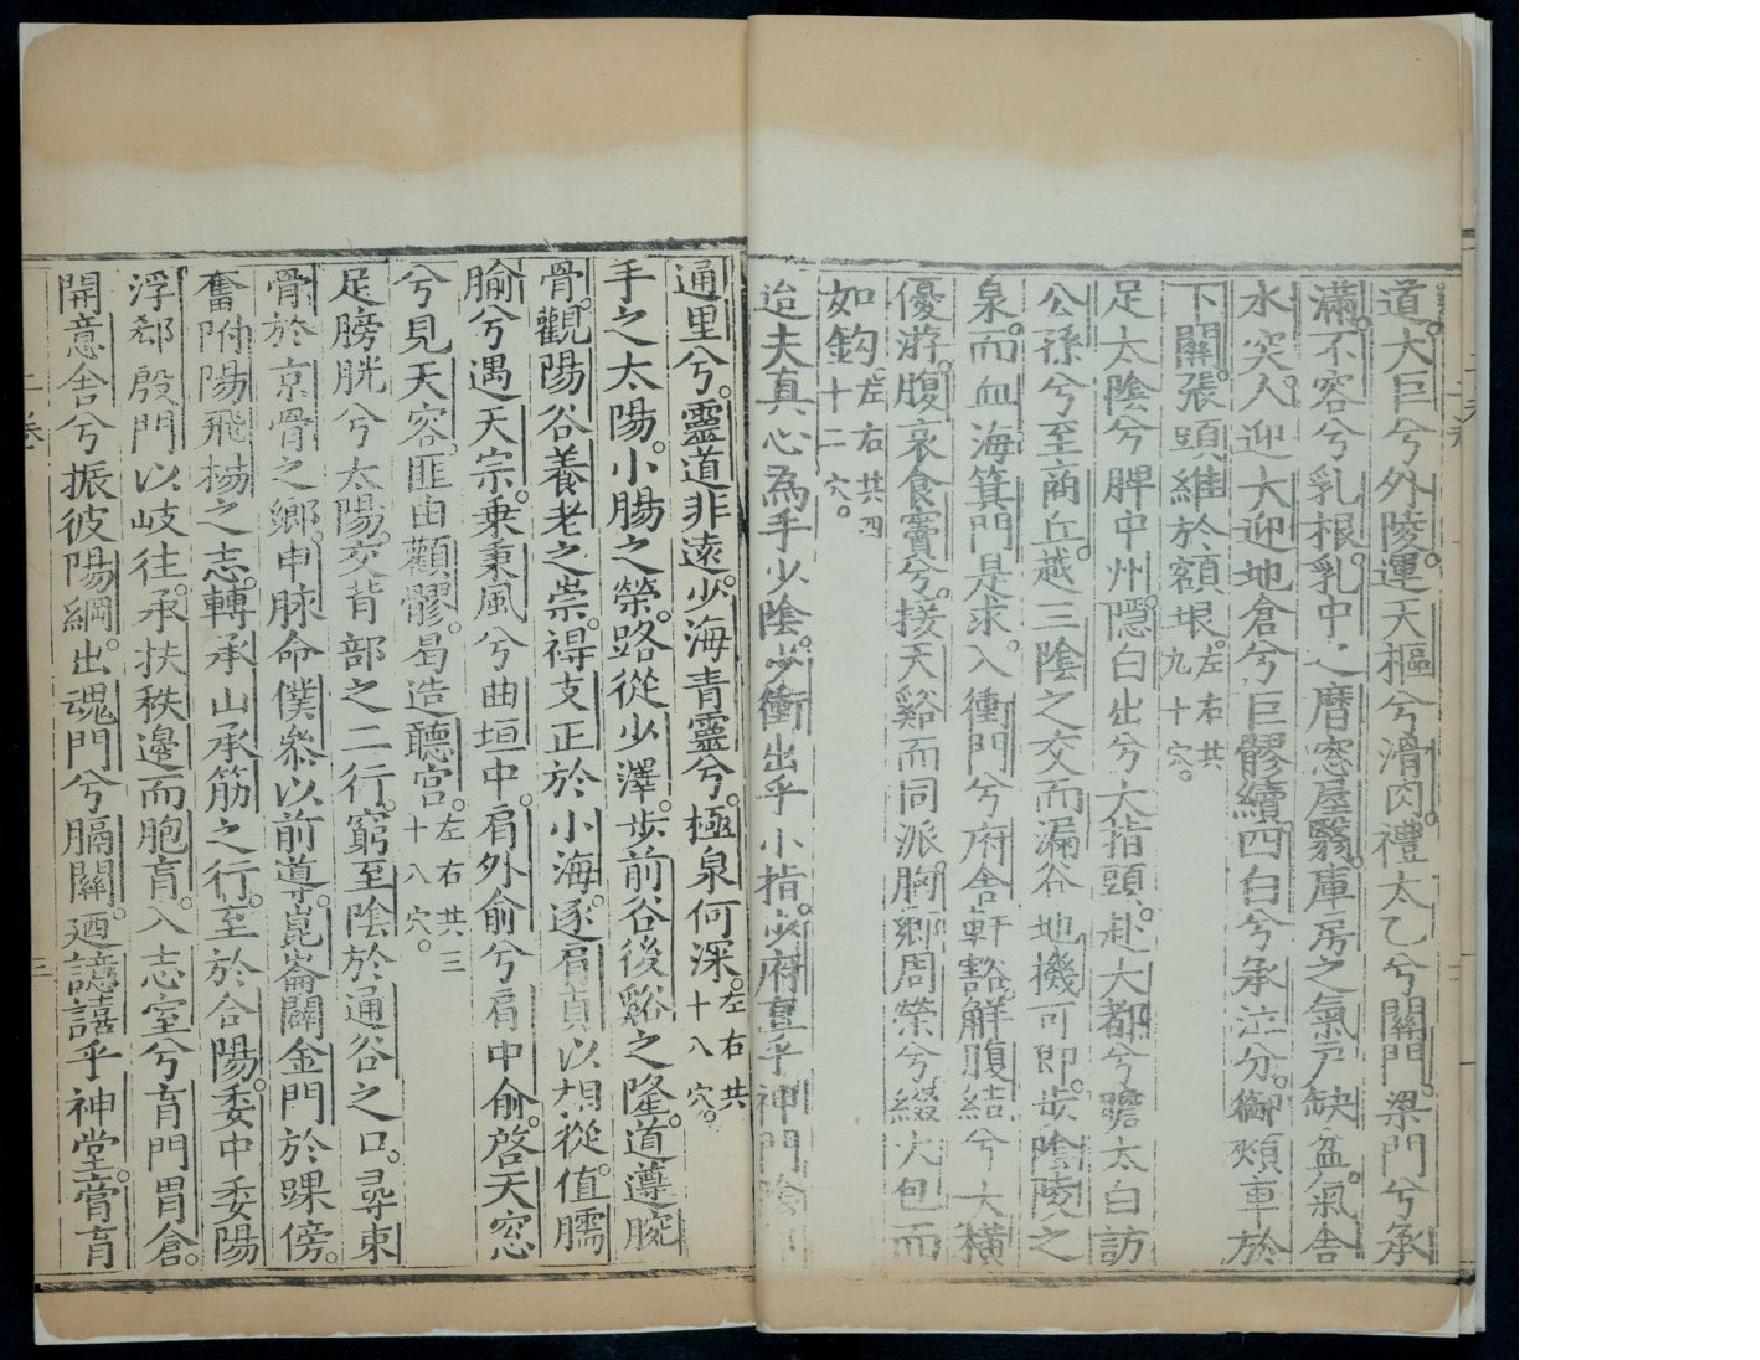 道。大巨兮外陵。運天樞兮滑肉。禮太乙兮關門。梁門兮承
滿。不容兮乳根。乳中之膺窓屋翳。庫房之氣戶缺盆。氣舍
水突人。迎大迎地倉兮巨髎續。四白兮承泣分。御頰車於
下關。張頭維於額垠。左右共九十穴。
足太陰兮脾中州。隱白出兮大指頭。赴大都兮瞻太白訪
公孫兮至商丘。越三陰之交而漏谷地機可即。步陰陵之
泉。而血海箕門是求。入衝門兮府舍軒豁。觧腹結兮大橫
優游。腹哀食竇兮。接天谿而同派。胸鄉周榮兮綴大包而
如鈎。左右共四十二穴。
迨夫真心為手少陰。少衝出乎小指。少府直乎神門陰
通里兮。靈道非遠。少海青靈兮。極泉何深。左右共十八穴。
手之太陽。小腸之榮。路從少澤。步前谷後谿之隆。道遵腕
骨。觀陽谷養老之崇。得支正於小海。逐肩貞以相從。值臑
腧兮遇天宗。乗秉風兮曲垣中。肩外俞兮肩中俞。啓天窓
兮見天容。匪由顴髎。曷造聽宮。左右共三十八穴。
足膀胱兮太陽。交背部之二行。窮至陰於通谷之口。尋束
骨於京骨之鄉。申脉命僕參以前導。崑崙闢金門於踝傍。
奮附陽飛揚之志。轉承山承筋之行。至於合陽。委中委陽
浮郄殷門以岐往。承扶秩邊而胞肓。入志室兮肓門胃倉。
開意舍兮振彼陽綱。出魂門兮膈關。廼譩譆乎神堂。膏肓
二卷
三